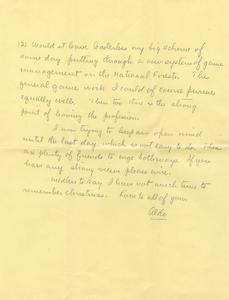 (2) Would it leave leaderless my big scheme of
some day putting through a new system of game
management on the National Forests. The
general game work I could of course pursue
equally well. Then too this is the strong
point of leaving the profession.
I am trying to keep an open mind
until the last day, which is not easy to do. There
are plenty of friends to urge both ways. If you
have any strong views please wire.
Needless to say I have not much time to
remember Christmas. Love to all of you
Aldo